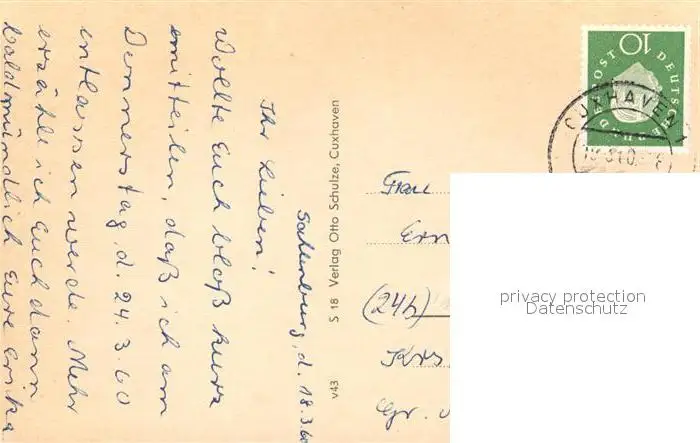 Sahlenburg, d. 18.3.60
Ihr Lieben!
Wollte Euch bloß kurz
mitteilen, daß ich am
Donnerstag, d. 24.3.60
entlassen werde. Mehr
erzähle ich Euch dann
bald mündlich Eure Erika
S 18 Verlag Otto Schulze, Cuxhaven
v43
10
DEUTSCHE BUNDESPOST
CUXHAVEN 1
Frau
Ern
(24b)
Krs.
Gr.
privacy protection
Datenschutz